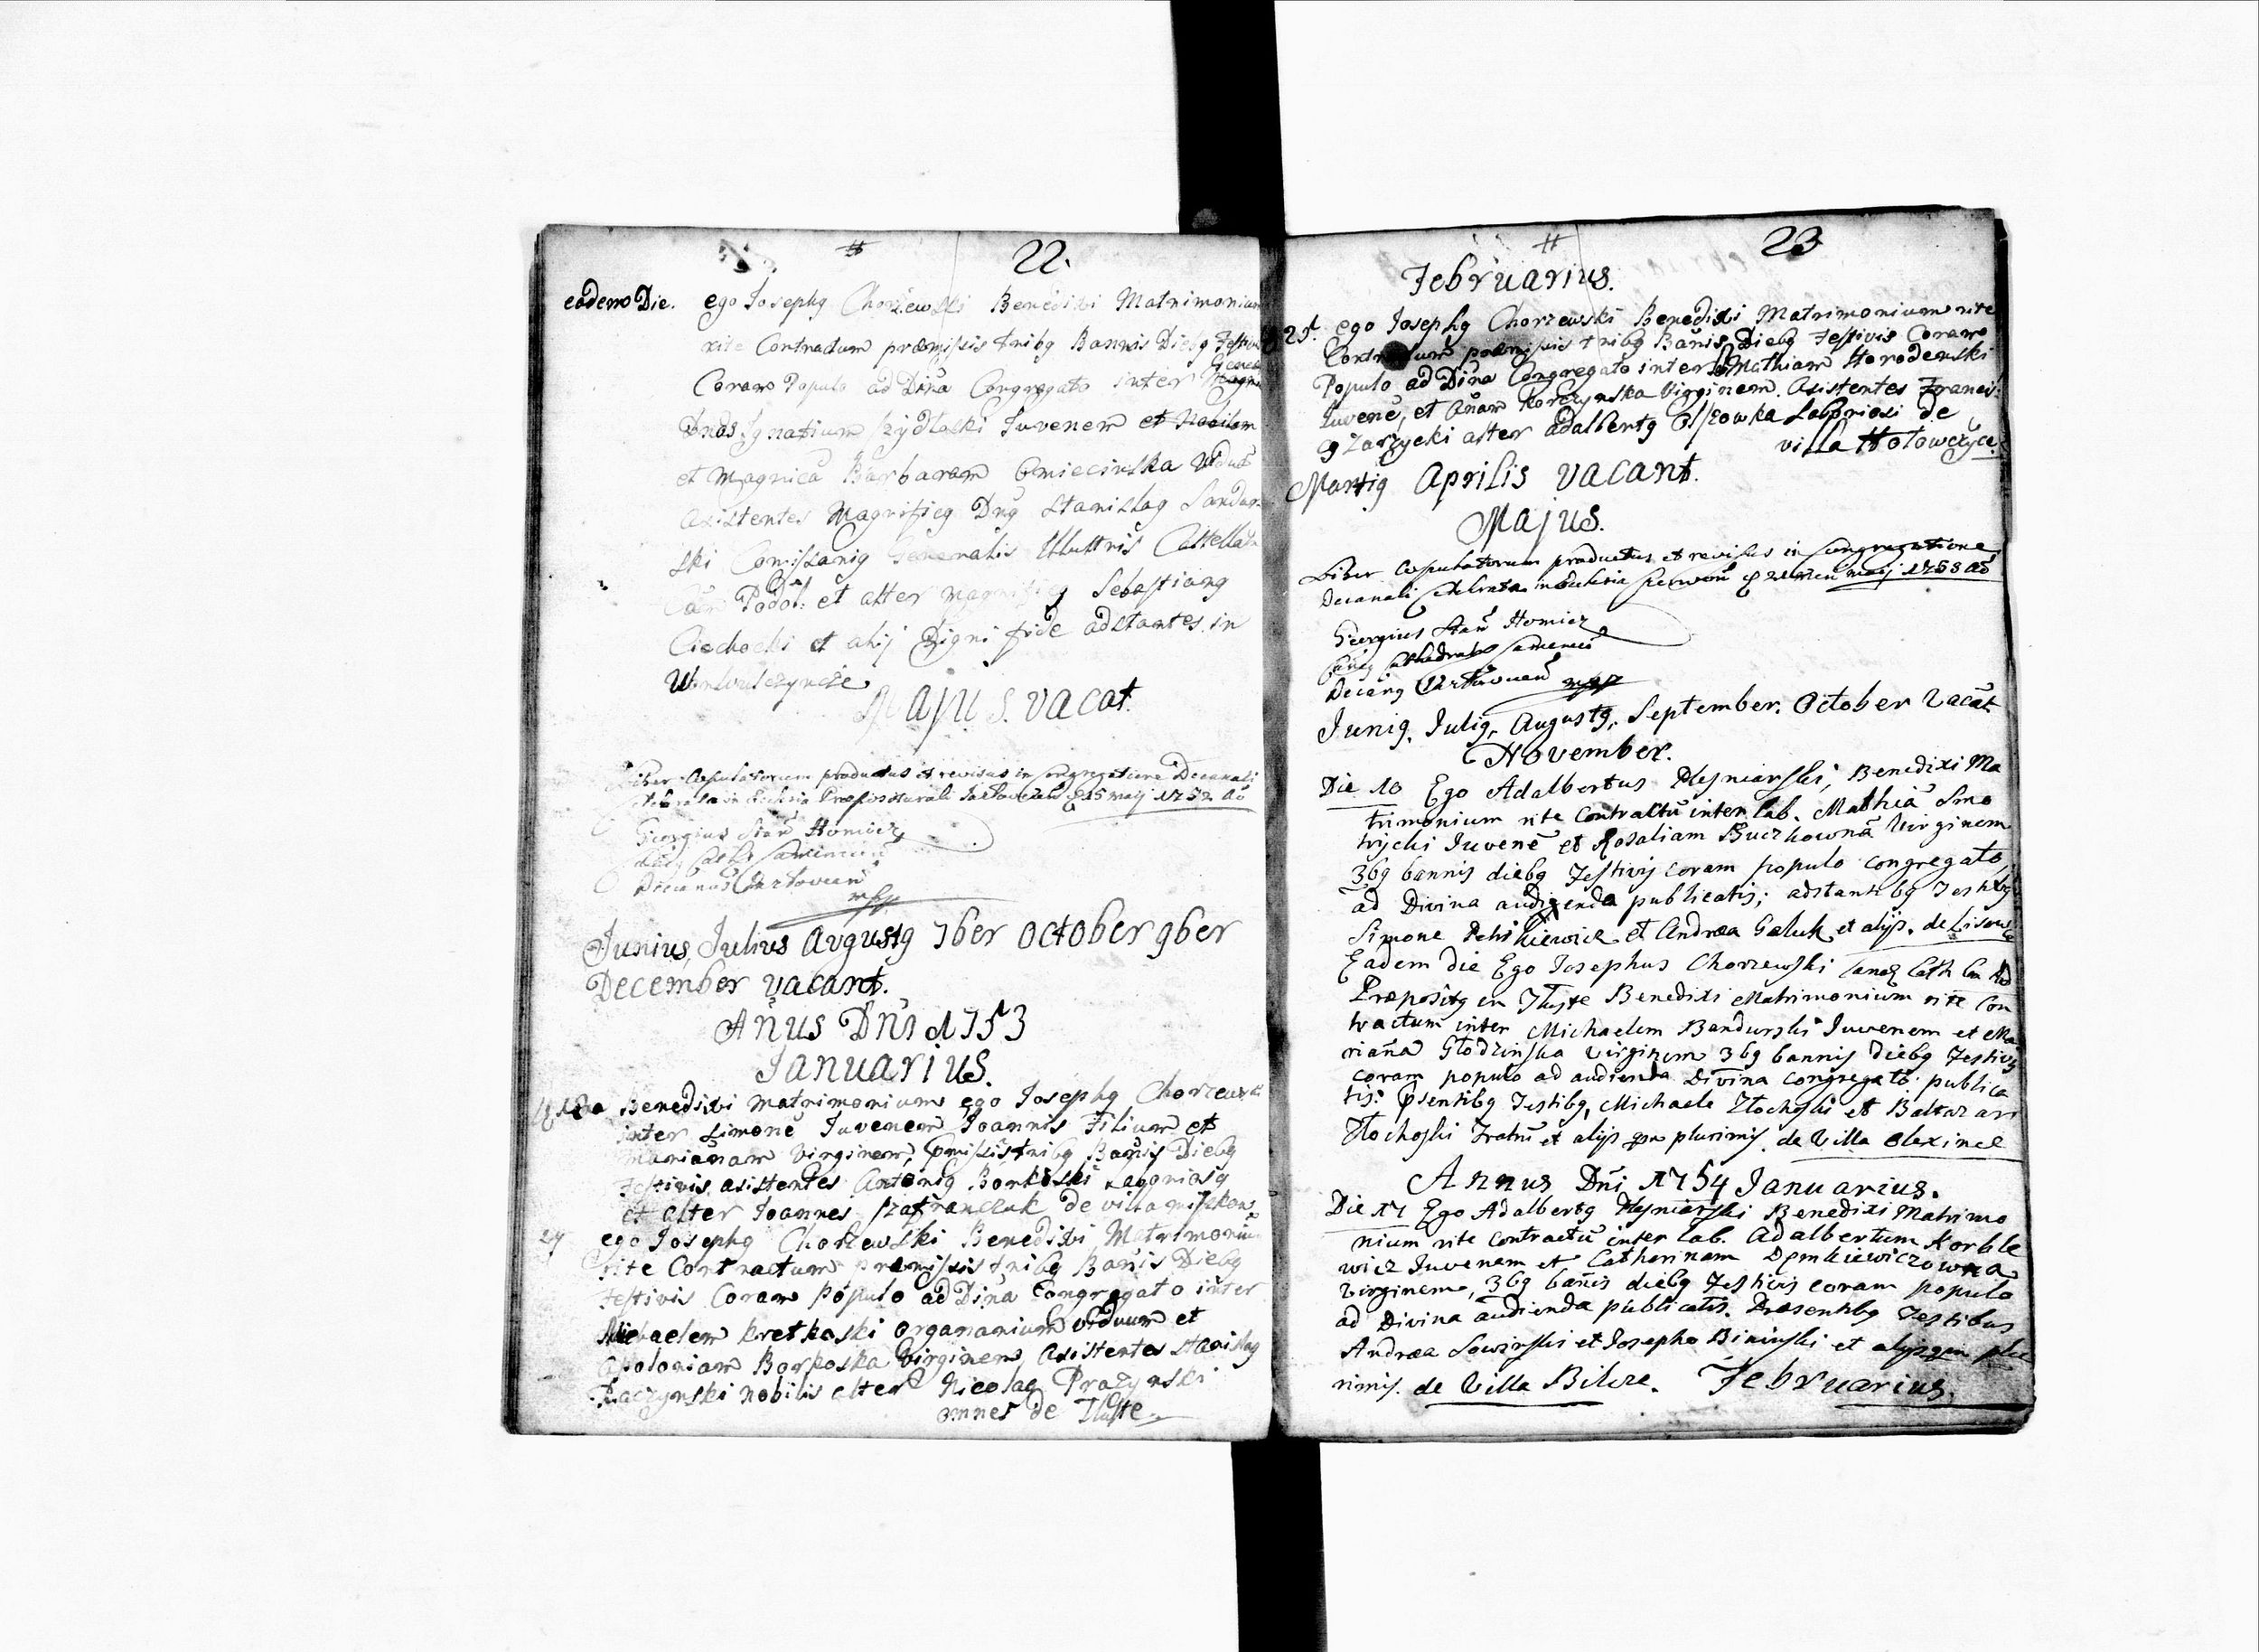 22.
eadem Die. ego Josephg Chorzewski Benedixi Matrimonium
rite Contractum præmissis tribg Bannis Diebg Festivis
Coram Populo ad Dina Congregato inter
Dnos Ignatium Szydłoski Juvenem et Nobilem
et Magnica Barbaram Omiecinska
Asistentes Magnificg Dng Stanislag
ski Comissarig Generalis Illustris
Podol: et alter magnificg Sebastiang
Ciechocki et alij Digni fide adstantes in
Majus. vacat.
Liber Copulatorum productus et revisus in Congregatione Decanali
celebrata in Ecclesia Præpositurali 15 maij 1752 Ao
Georgius Homicz
Decanus
mpp
Junius, Julius Avgustg 7ber October 9ber
December vacant.
Anus Dni 1753
Januarius.
18a Benedixi Matrimonium ego Josephg Chorzewski
inter Simone Juvenem Joannis Filium et
marianam Virginem, pmissis tribg Banis Diebg
Festivis asistentes Antonig Borkoski
et alter Joannes Szafranczuk de villa
27 ego Josephg Chorzewski Benedixi Matrimonium
rite Contractum præmissis tribg Banis Diebg
Festivis Coram Populo ad Dina Congregato inter
Michaelem Kretkoski organarium viduum et
Apoloniam Borkoska Virginem, Asistentes Stanislag
Raczynski nobilis alter Nicolag Prazynski
omnes de Tłuste.
23
Februarius.
21. ego Josephg Chorzewski Benedixi Matrimonium rite
Contractum præmissis tribg Banis Diebg Festivis Coram
Populo ad Dina Congregato inter Mathiam Horodenski
Juvene, et Anam Korczynska Virginem. Asistentes Francis
g Zarzycki alter Adalbertg Olszowka Laboriosi de
villa Hołowczynce
Martig Aprilis vacant.
Majus.
Liber Copulatorum productus et revisus in Congregatione
Decanali celebrata in Ecclesia maij 1753 Ao
Georgius Homicz
Cathedralis
Decang
mpp
Junig. Julig, Augustg, September. October vacat
November.
Die 10 Ego Adalbertus Młyniarski, Benedixi Ma
trimonium rite contractu inter lab. Mathia Smo
trycki Juvene et Rosaliam Buczkowna Virginem
3bg bannis diebg Festivis coram populo congregato
ad Divina audienda publicatis; adstantibg Testibg
Simone et Andrea Galuk et alijs. de
Eadem die Ego Josephus Chorzewski
Præpositg in Tłuste Benedixi Matrimonium rite Con
tractum inter Michaelem Bandurski Juvenem et Ma
riana Głodzinska Virginem 3bg bannis diebg Festivis
coram populo ad audienda Divina congregato publica
tis: psentibg Testibg, Michaele Złochoski et Baltazari
Złochoski Fratri et alijs qm plurimis. de Villa Olexince
Annus Dni 1754 Januarius.
Die 17 Ego Adalbertg Młyniarski Benedixi Matrimo
nium rite contractu inter lab. Adalbertum Korble
wicz Juvenem et Catharinam Demkiewiczowna
Virginem, 3bg banis diebg Festivis coram populo
ad Divina audienda publicatis. Præsentibg Testibus
Andrea Sowinski et Josepho Bininski et alijs qm plu
rimis. de Villa Bilcze. Februarius.